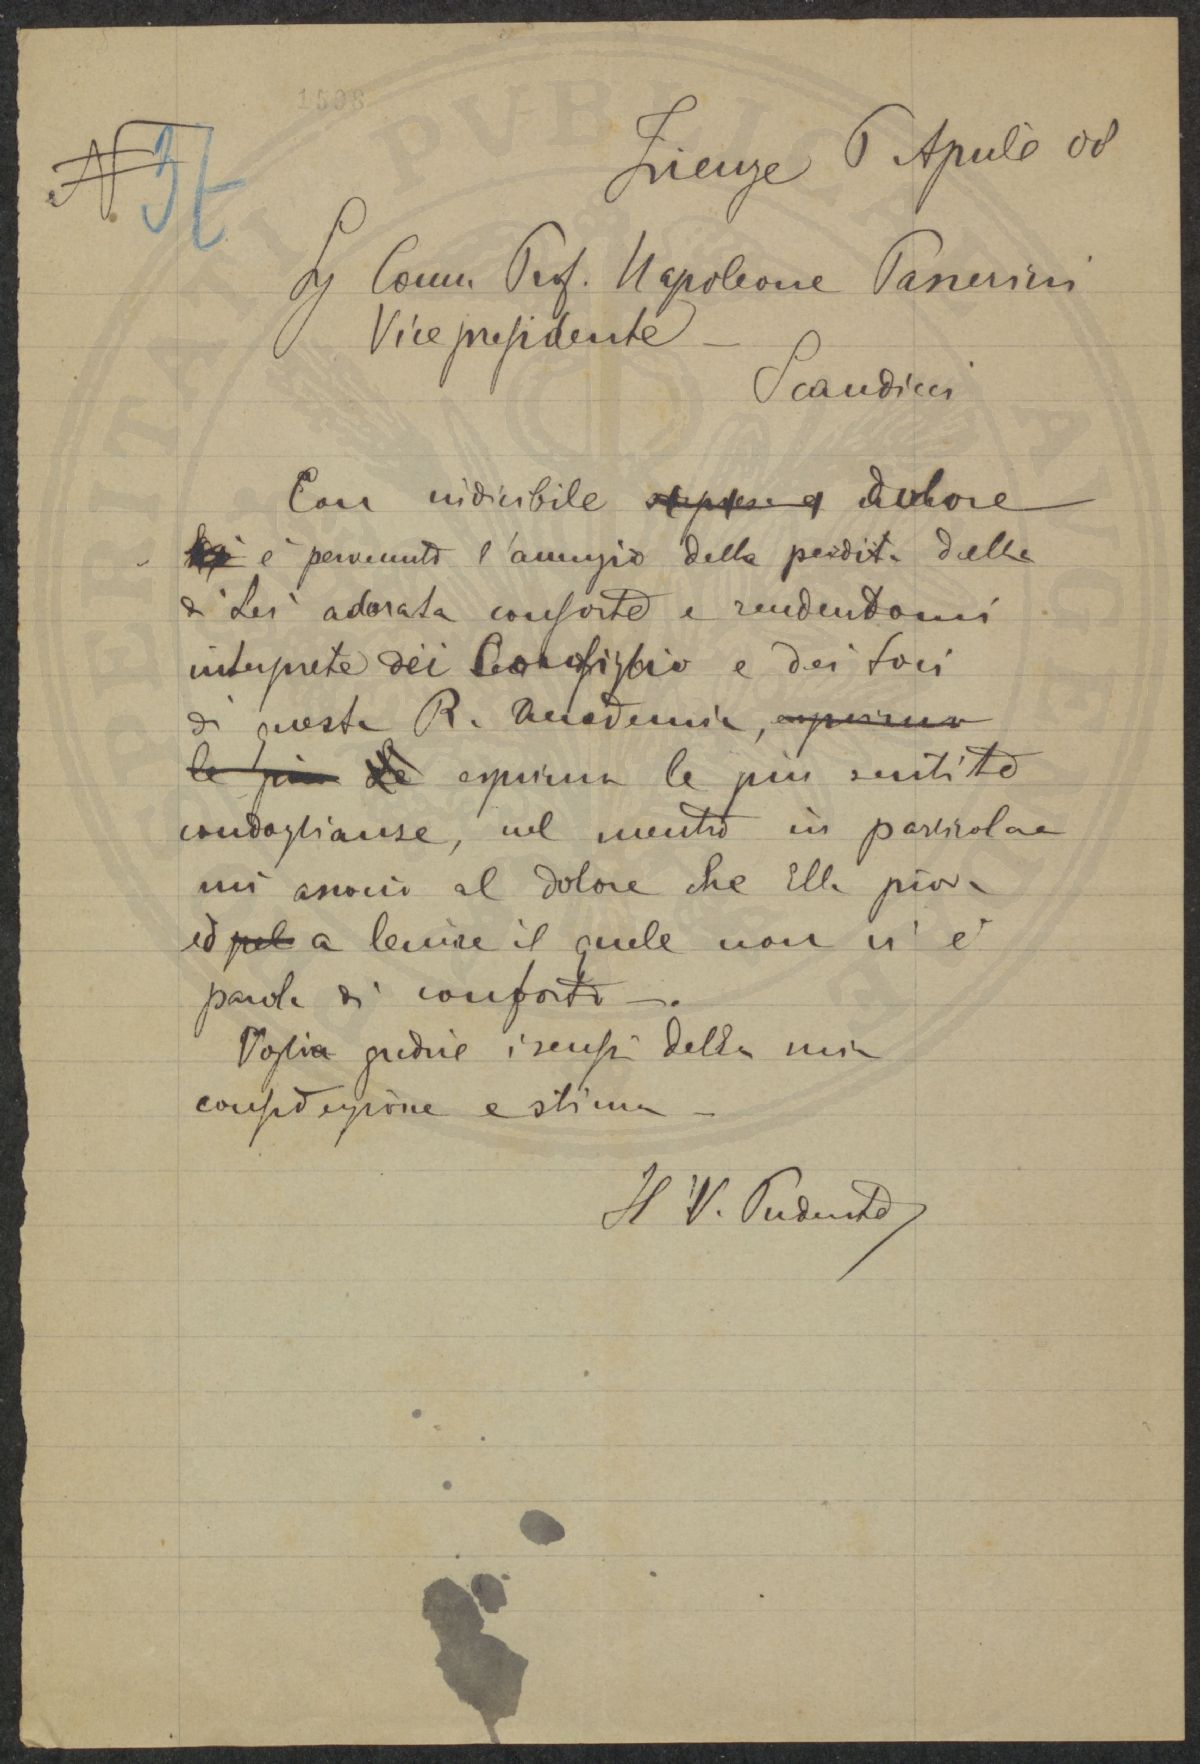 1908
N 37
Firenze 6 Aprile 08
Sig Comm Prof. Napoleone Passerini
Vicepresidente –
Scandicci
Con indicibile sorpresa e dolore
è pervenuto l'annuzio della perdita della
di Lei adorata consorte e rendendomi
interprete dei Consiglio e dei soci
di questa R. Accademia, esprimo
le più le esprimo le più sentite
condoglianze, nel mentre in particolare
mi associo al dolore che Ella prova
ed pel a lenire il quale non vi è
parola di conforto –.
Voglia gradire i sensi della mia
considerazione e stima –
Il V. Presidente